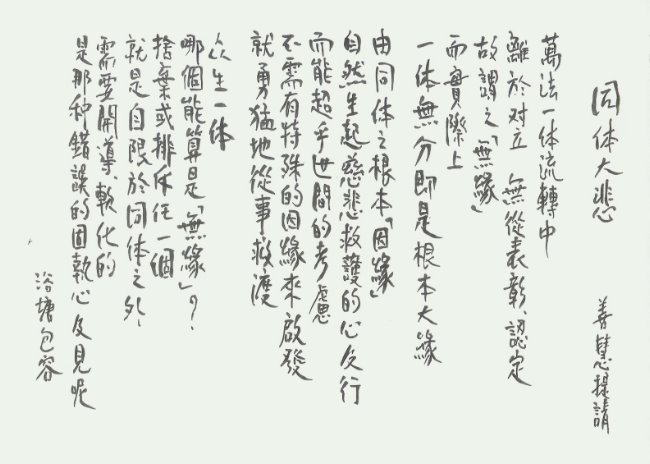 同体大悲
善慧提請
萬法一体流轉中
離於对立 無從表彰、認定
故謂之「無緣」
而實際上
一体無分即是根本大緣
由同体之根本「因緣」
自然生起慈悲救護的心及行
而能超乎世間的考慮
不需有特殊的因緣來啟發
就勇猛地從事救渡
众生一体
哪個能算是「無緣」?
捨棄或排斥任一個
就是自限於同体之外、
需要開導、軟化的
是那种錯誤的固執心及見呢
浴塘包容